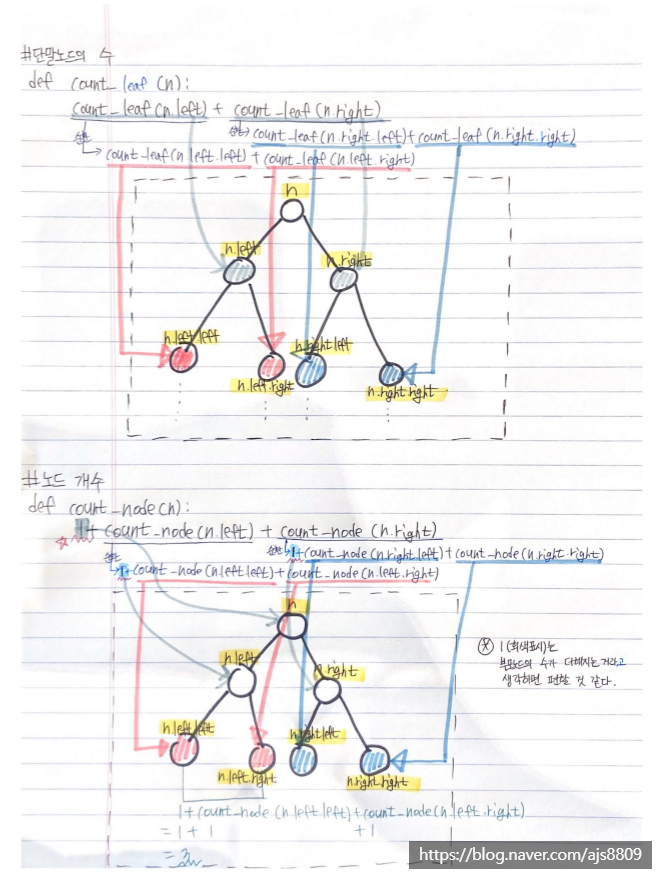 #단말노드의 수
def count_leaf(n):
count_leaf(n.left) + count_leaf(n.right)
순환 count_leaf(n.right.left)+count_leaf(n.right.right)
순환 count_leaf(n.left.left) + count_leaf(n.left.right)
n
n.left n.right
n.left.left n.right.left
n.left.right n.right.right
#노드 개수
def count_node(n):
1+ count_node(n.left) + count_node(n.right)
순환 1+count_node(n.right.left)+count_node(n.right.right)
순환 1+count_node(n.left.left)+count_node(n.left.right)
n
n.left n.right
※ 1(회색표시)는
부모노드의 수가 더해지는거라고
생각하면 편할 것 같다.
n.left.left n.right.left
n.left.right n.right.right
1+count_node(n.left.left)+count_node(n.left.right)
= 1 + 1 + 1
= 3
https://blog.naver.com/ajs8809